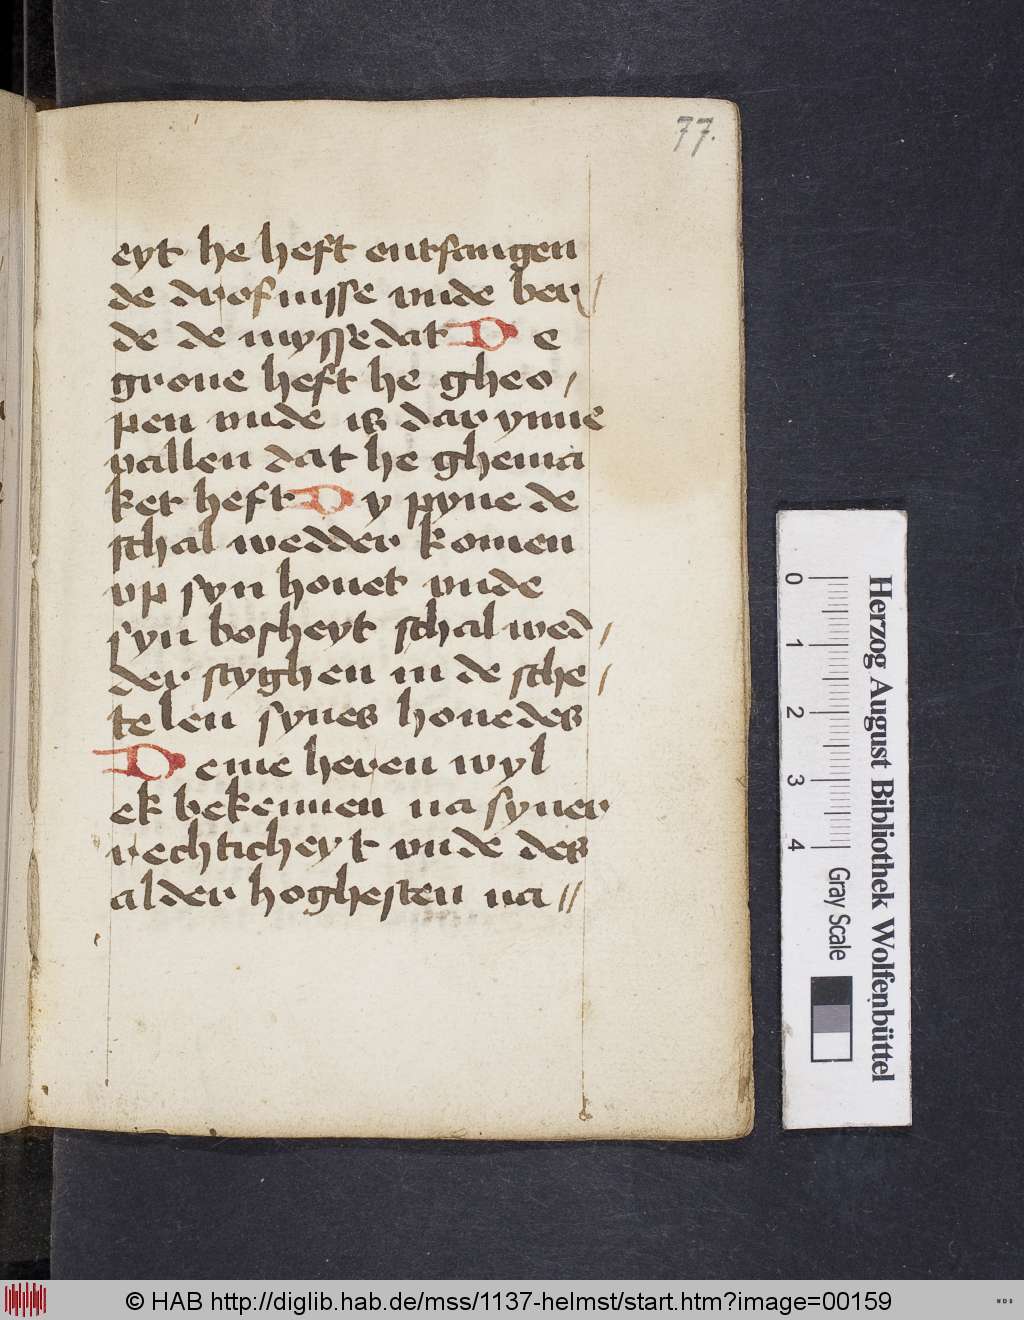 77.
eyt he heft entfangen
de drofnisse vnde ber//
de de myssedat De
groue heft he gheo/
pen vnde is dar ynne
vallen dat he ghema
ket heft Dy pyne de
schal wedder komen
vp syn houet vnde
syn bosheyt schal wed/
der styghen in de sche/
telen synes houedes
Deme heren wyl
ek bekennen na syner
rechticheyt vnde des
alder hoghesten na//
0 1 2 3 4
Herzog August Bibliothek Wolfenbüttel
Gray Scale
© HAB http://diglib.hab.de/mss/1137-helmst/start.htm?image=00159